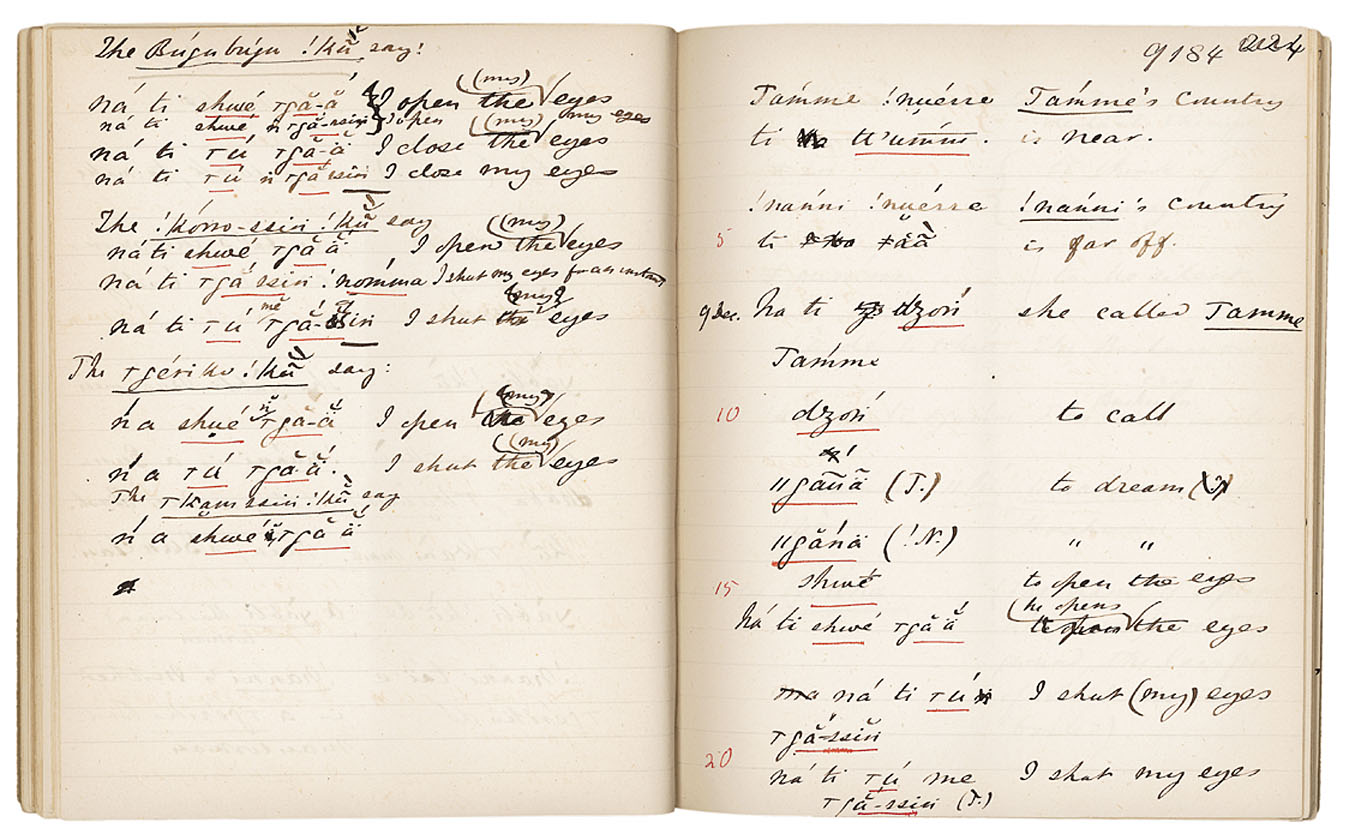 The Búgubúgu !kũ say:
ná ti shwé τgă-ắ I open the (my) eyes
ná ti shwé ń τgă-ssin I open (my) my eyes
ná ti τú τgă-ă I close the (my) eyes
ná ti τú ń τgă ssin I close my eyes
The !kórro-ssin !kũ say
ná ti shwé τgă ắ I open the (my) eyes
ná ti τgá ssin !nomma I shut my eyes for an instant
ná ti τú mĕ τgă-ssin I shut the (my) eyes
The τgériko !kũ say:
ń a shwé ń τgă-ă I open the (my) eyes
ń a τú τgă ă. I shut the (my) eyes
The τkam ssin !kũ say
ń a shwé ń τgă ă
9184 224
Támme !nuérre Támme's Country
ti tt'umm. is near.
!nańni !nuérre !nańni's Country
5 ti ‡ãã is far off.
9 Dec. Na ti dzoń she called Tamme
Tamme
10 dzoń to call
||gănă (T.) to dream
||găńă (!N.) " "
15 shwé to open the eyes
ná ti shwé τgă ă he opens the eyes
ná ti τú I shut (my) eyes
τgă-ssin
20 ná ti τú me I shut my eyes
τgă-ssin (T.)